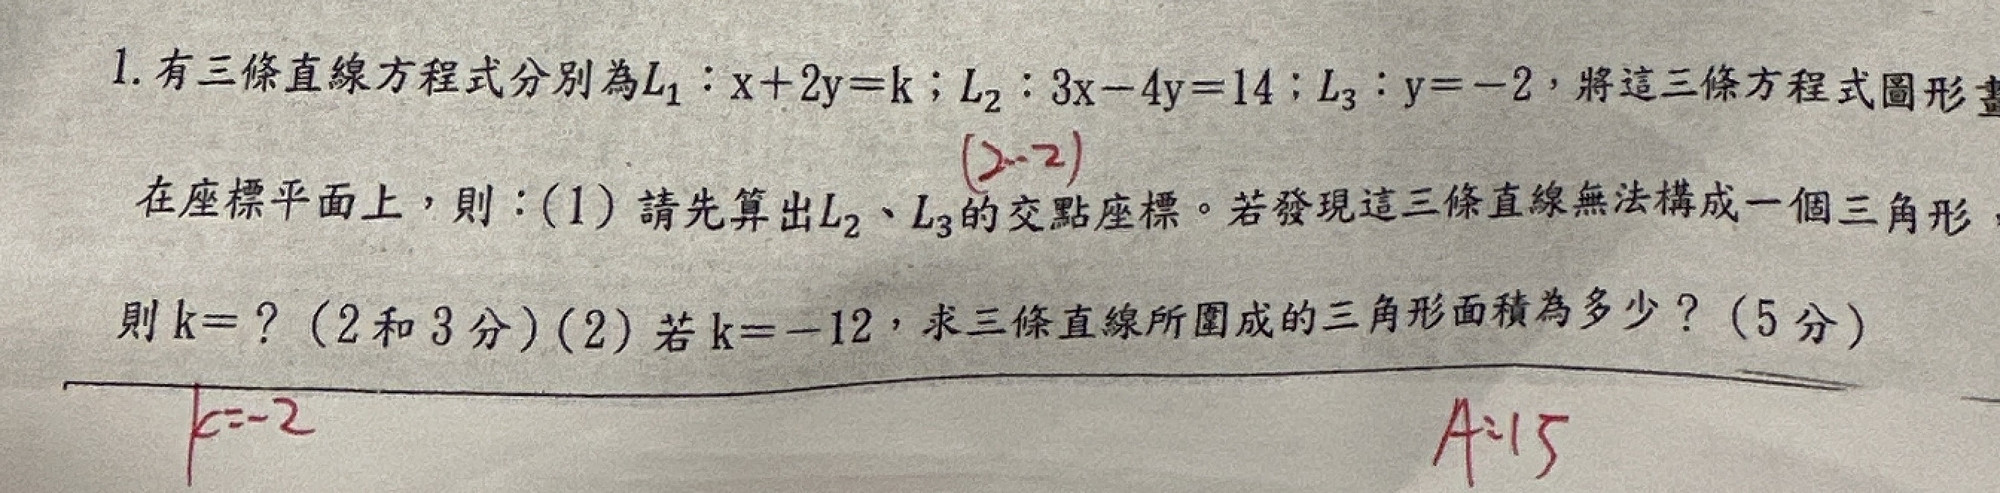 1. 有三條直線方程式分別為L₁：x＋2y＝k；L₂：3x－4y＝14；L₃：y＝－2，將這三條方程式圖形畫
(2.-2)
在座標平面上，則：(1) 請先算出L₂、L₃的交點座標。若發現這三條直線無法構成一個三角形，
則 k＝？（2 和 3 分）(2) 若 k＝－12，求三條直線所圍成的三角形面積為多少？（5 分）
k=-2
A=15